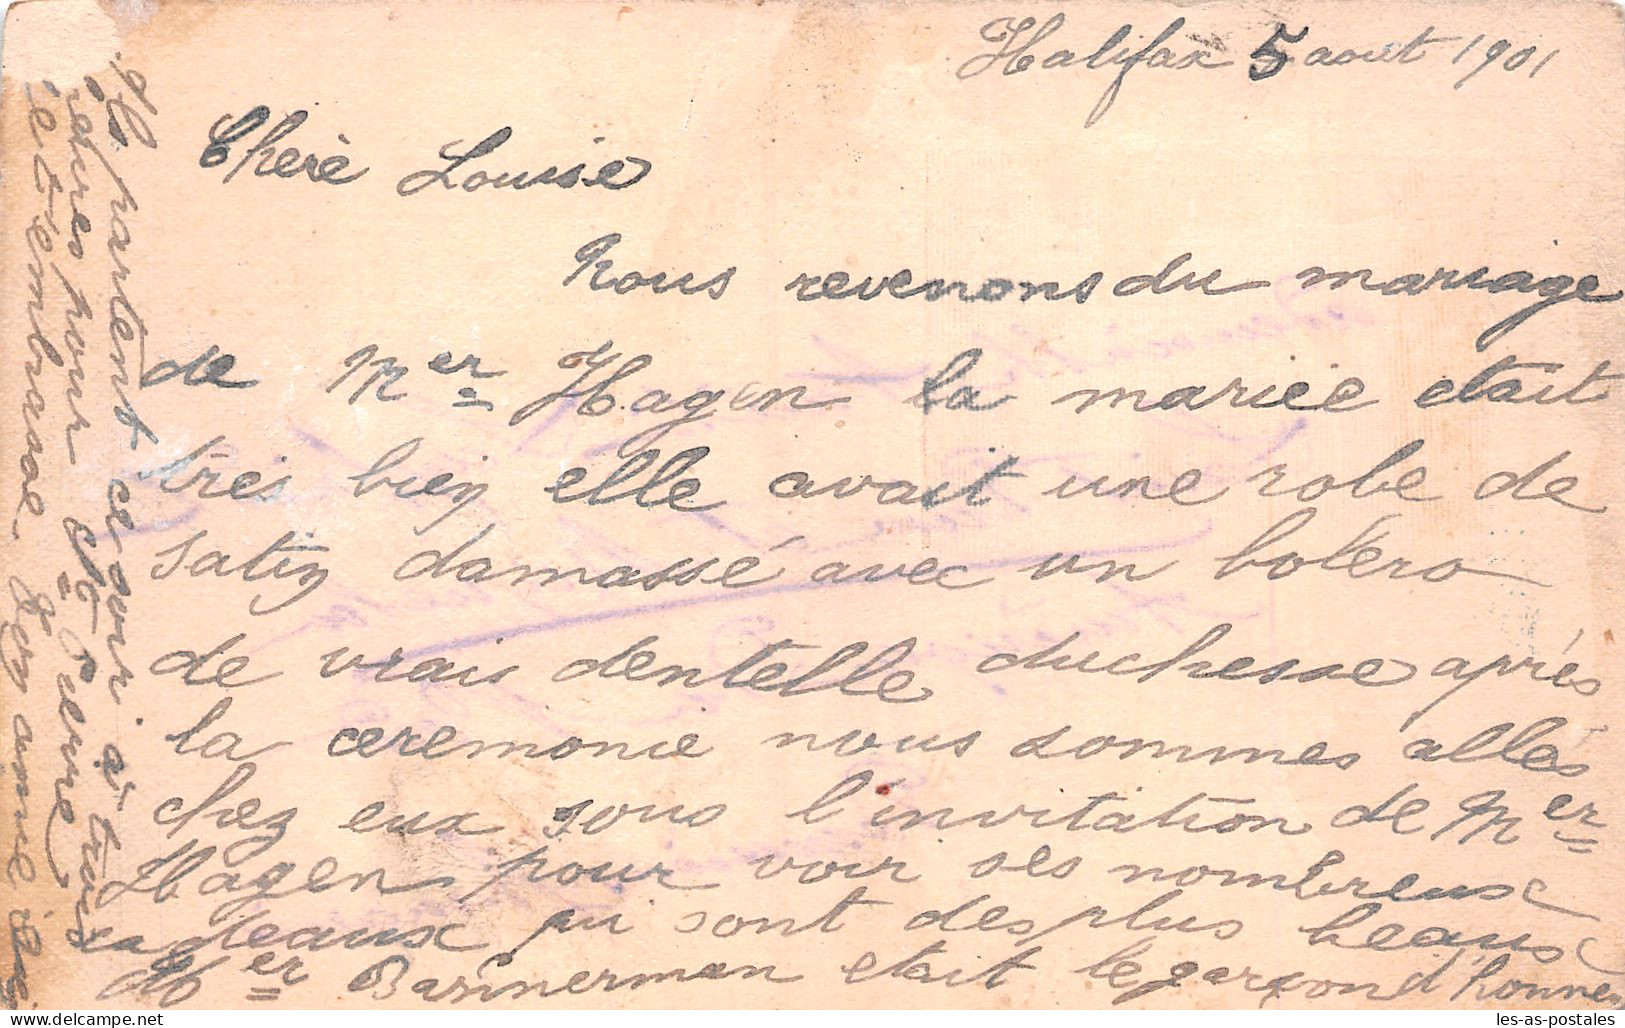 Halifax 5 aout 1901
Chère Louise
Nous revenons du mariage
de Mer Hagen la mariée etait
très bien elle avait une robe de
satin damassé avec un boléro
de vrais dentelle duchesse après
la ceremonie nous sommes allés
chez eux sous l'invitation de Mer
Hagen pour voir ses nombreux
cadeaux qui sont des plus beaux
Mer Bannerman etait le garçon d'honneur
Ils partent ce soir à trois
heures pour
et t'embrasse.
les-as-postales